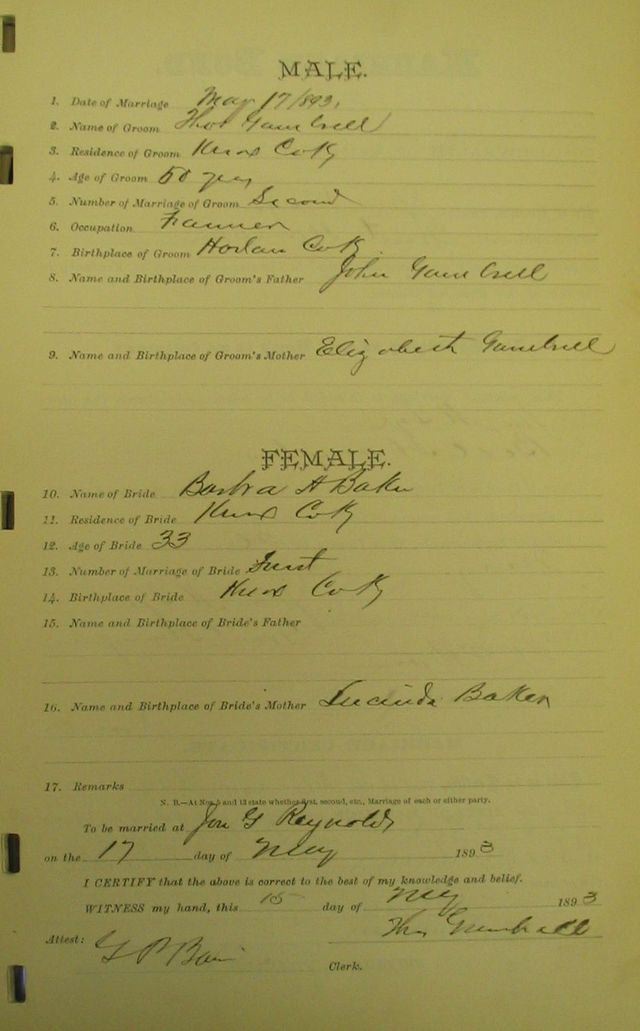 MALE.
1. Date of Marriage May 17/1893.
2. Name of Groom Thos Gambrell
3. Residence of Groom Knox Co Ky
4. Age of Groom 50 yrs
5. Number of Marriage of Groom Second
6. Occupation Farmer
7. Birthplace of Groom Harlan Co Ky.
8. Name and Birthplace of Groom's Father John Gambrell
9. Name and Birthplace of Groom's Mother Elizabeth Gambrell
FEMALE.
10. Name of Bride Barbra A Baker
11. Residence of Bride Knox Co Ky
12. Age of Bride 33
13. Number of Marriage of Bride First
14. Birthplace of Bride Knox Co Ky
15. Name and Birthplace of Bride's Father
16. Name and Birthplace of Bride's Mother Lucinda Baker
17. Remarks
N. B.—At Nos. 5 and 13 state whether first, second, etc., Marriage of each or either party.
To be married at Jon G Reynolds
on the 17 day of May 1893
I CERTIFY that the above is correct to the best of my knowledge and belief.
WITNESS my hand, this 15 day of May 1893
Thos Gambrell
Attest: G P
Clerk.